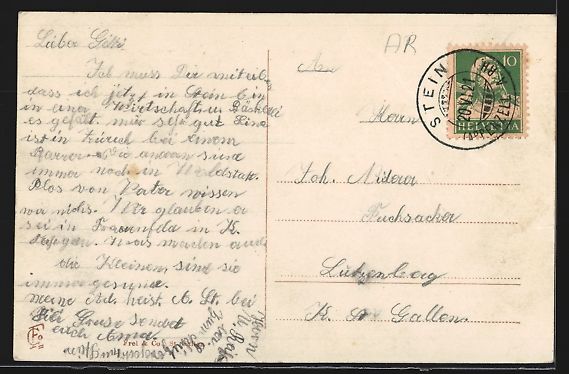 Lieber Götti.
Ich muss Dir mitteilen
dass ich jetzt in Stein bin
in einer Wirtschaft u. Bäckerei
es gefällt mir sehr gut. Lina
ist in Zürich bei einem
Pfarrer. Die andern sind
immer noch in Waldstatt.
Blos von Vater wissen
wir nichts. Wir glauben er
sei in Frauenfeld in K.
Thurgau. Was machen auch
die Kleinen, sind sie
immer gesund.
meine Ad. heist, A. St. bei
Viele Grüsse sendet
euch Anna
Frei & Co., St. Gallen
AR
An
Herrn
Joh. Niderer
Fuchsacker
Lutzenberg
K. St Gallen
STEIN
(APPENZELL)
10
HELVETIA